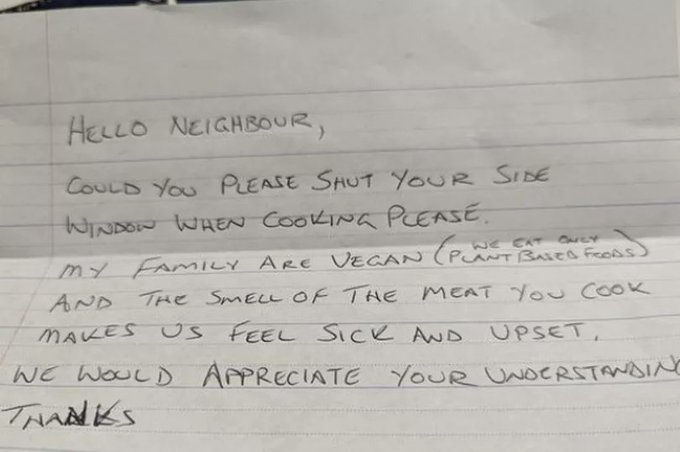 HELLO NEIGHBOUR,
COULD YOU PLEASE SHUT YOUR SIDE
WINDOW WHEN COOKING PLEASE.
MY FAMILY ARE VEGAN (WE EAT ONLY
PLANT BASED FOODS)
AND THE SMELL OF THE MEAT YOU COOK
MAKES US FEEL SICK AND UPSET.
WE WOULD APPRECIATE YOUR UNDERSTANDIN
THANKS